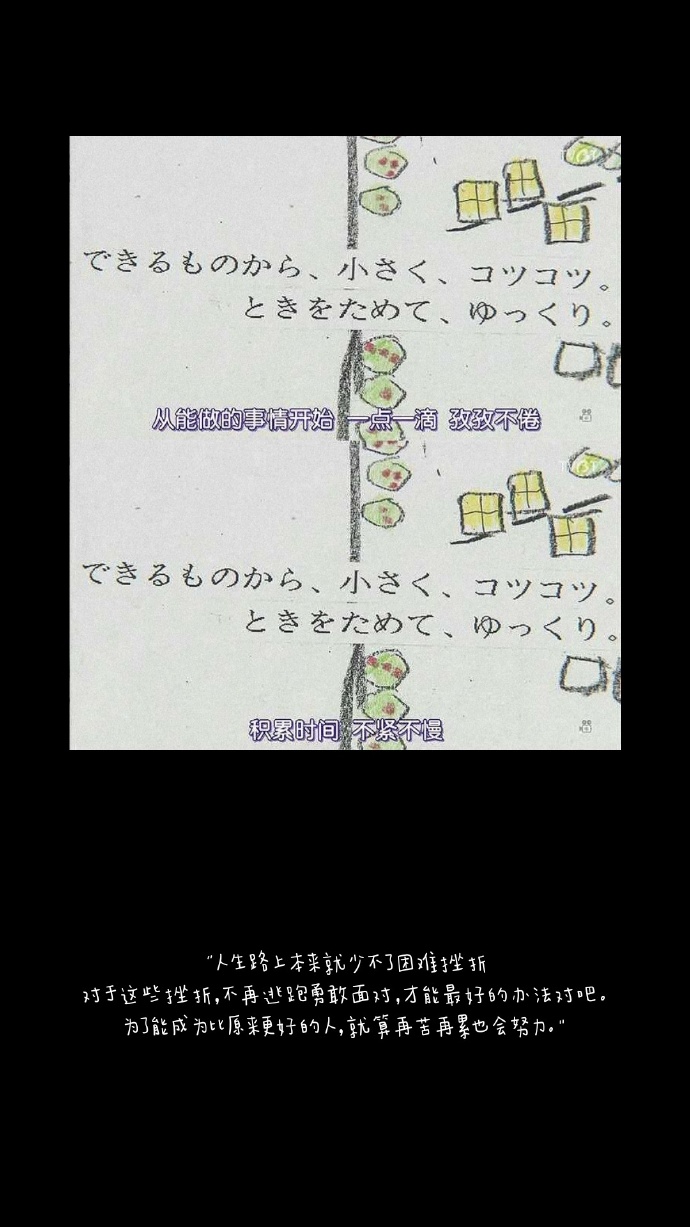 できるものから、小さく、コツコツ。
ときをためて、ゆっくり。
从能做的事情开始 一点一滴 孜孜不倦
できるものから、小さく、コツコツ。
ときをためて、ゆっくり。
积累时间 不紧不慢
“人生路上本来就少不了困难挫折
对于这些挫折,不再逃跑勇敢面对,才能最好的办法对吧。
为了能成为比原来更好的人,就算再苦再累也会努力。”